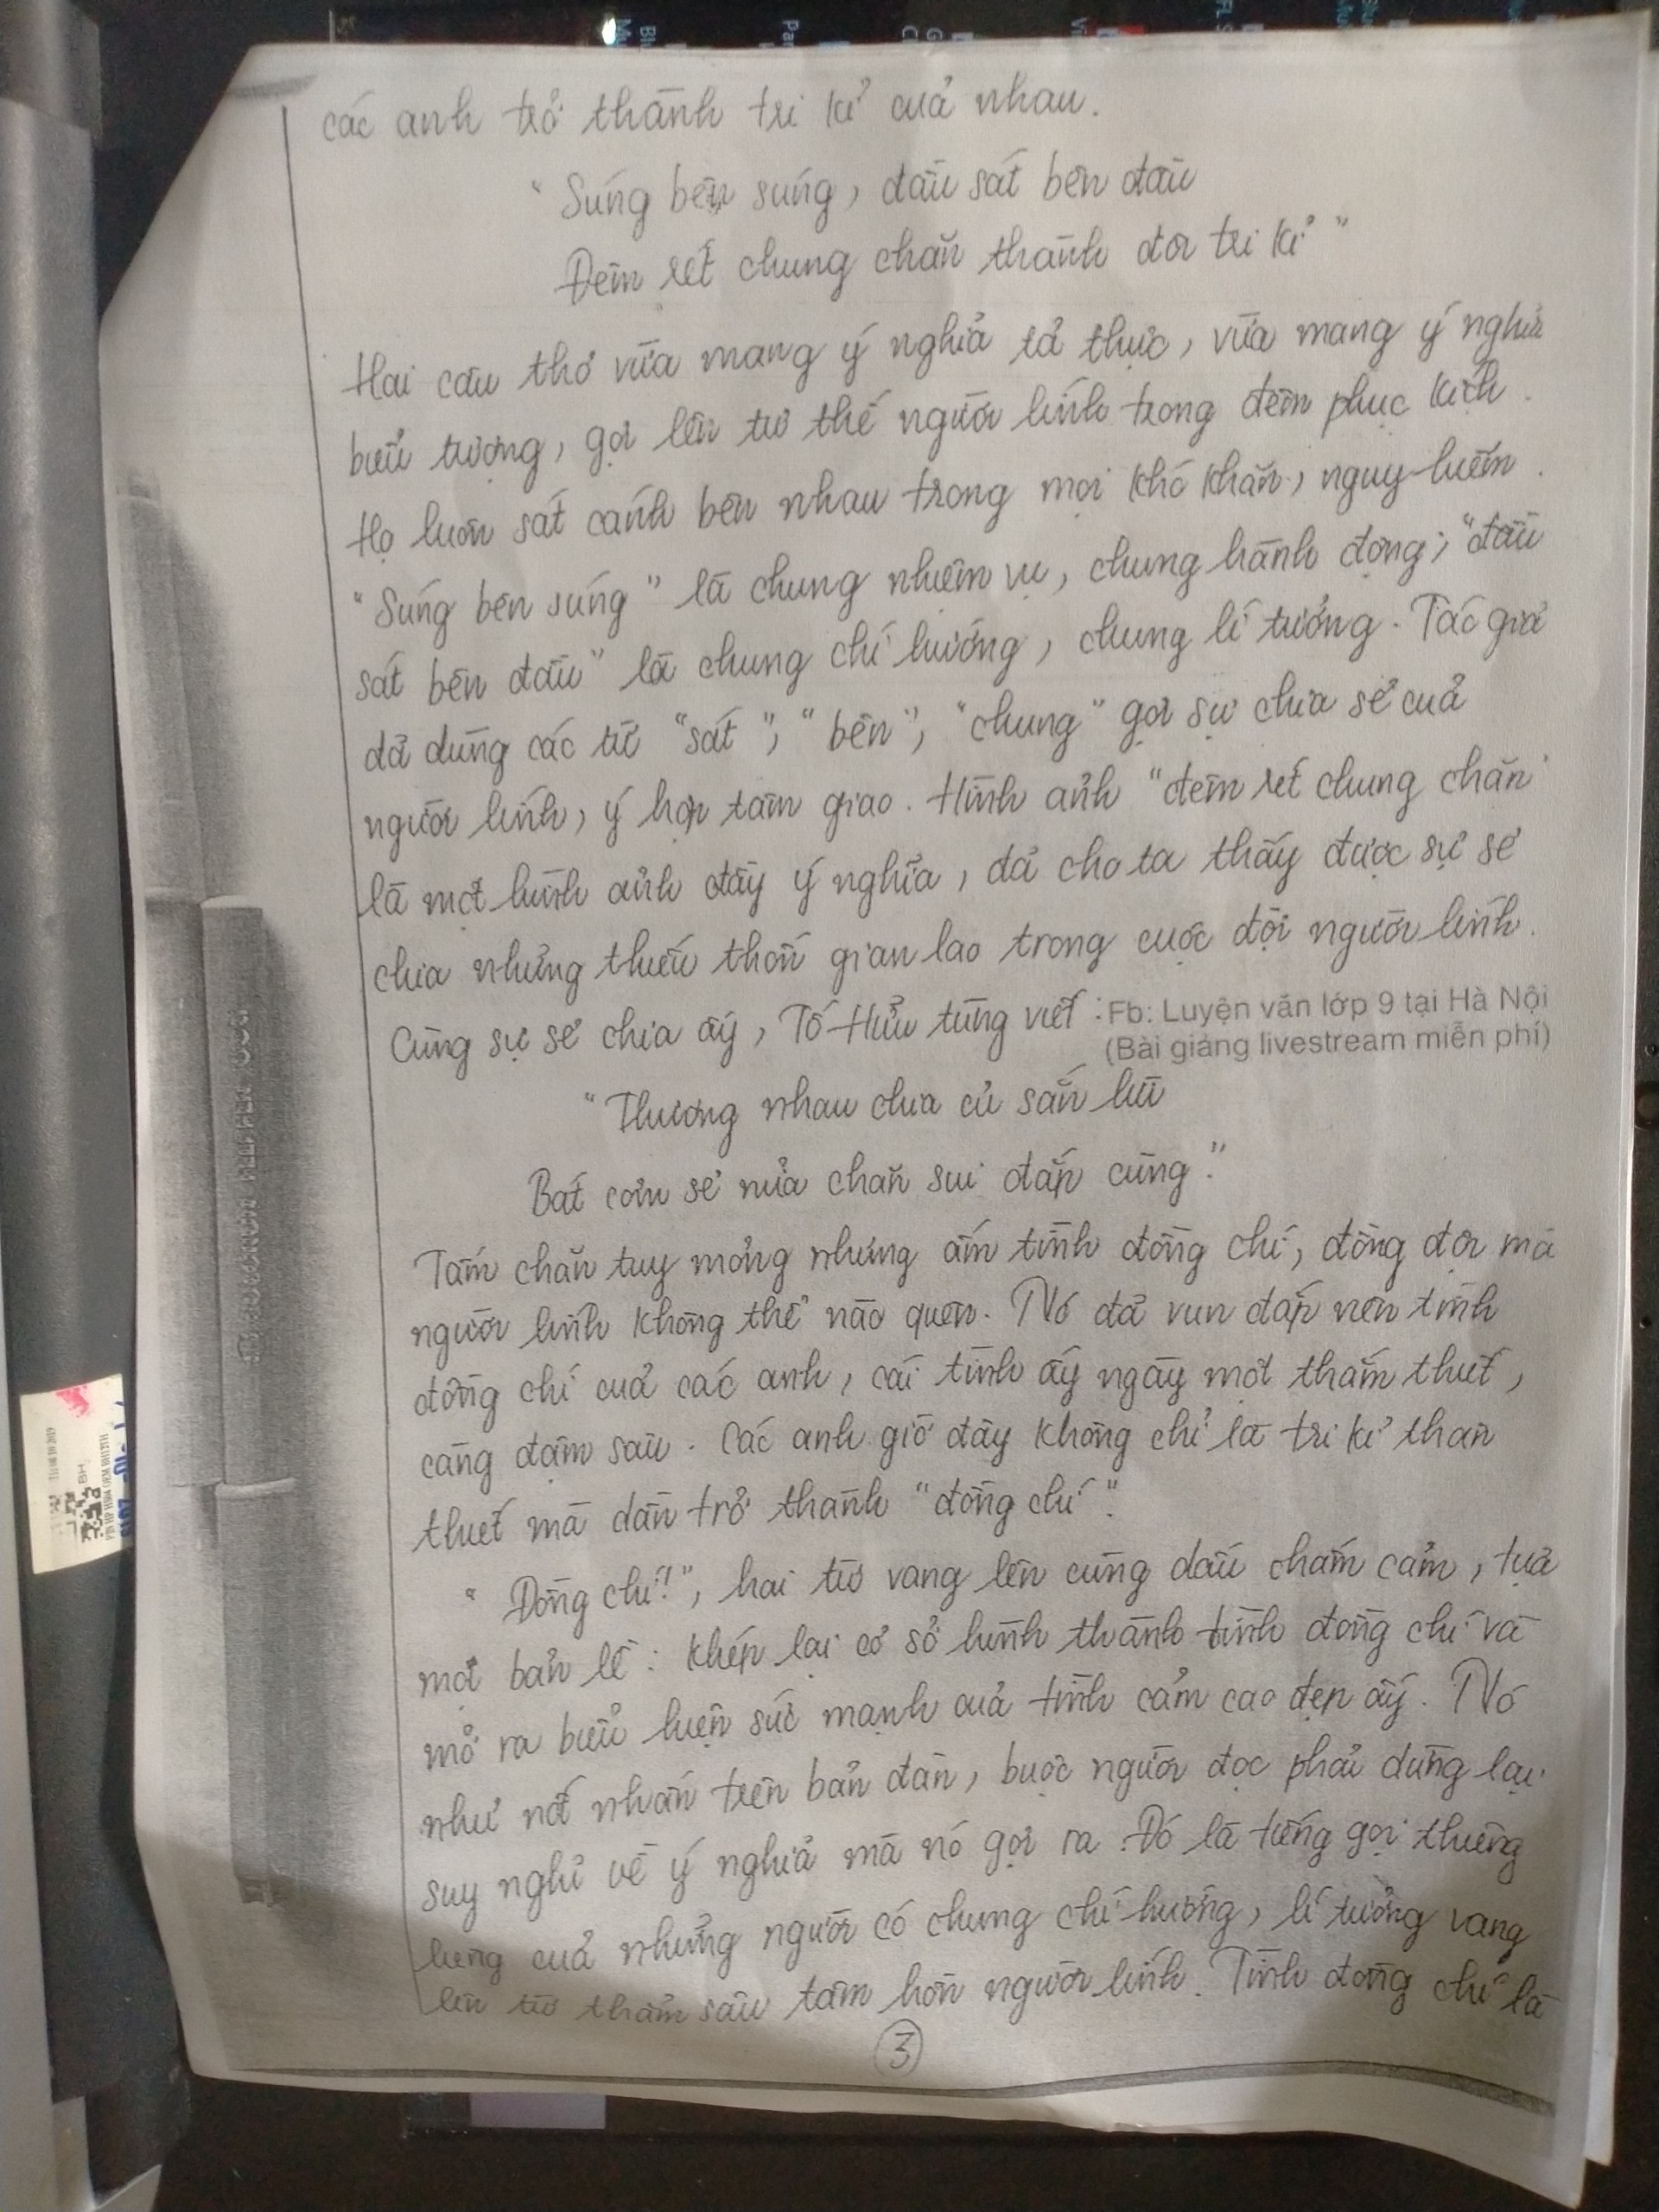 các anh trở thành tri kỉ của nhau.
"Súng bên súng, đầu sát bên đầu
Đêm rét chung chăn thành đôi tri kỉ"
Hai câu thơ vừa mang ý nghĩa tả thực, vừa mang ý nghĩa
biểu tượng, gợi lên tư thế người lính trong đêm phục kích.
Họ luôn sát cánh bên nhau trong mọi khó khăn, nguy hiểm.
"Súng bên súng" là chung nhiệm vụ, chung hành động; "đầu
sát bên đầu" là chung chí hướng, chung lí tưởng. Tác giả
đã dùng các từ "sát", "bên", "chung" gợi sự chia sẻ của
người lính, ý hợp tâm giao. Hình ảnh "đêm rét chung chăn"
là một hình ảnh đầy ý nghĩa, đã cho ta thấy được sự sẻ
chia những thiếu thốn gian lao trong cuộc đời người lính.
Cùng sự sẻ chia ấy, Tố Hữu từng viết: Fb: Luyện văn lớp 9 tại Hà Nội
(Bài giảng livestream miễn phí)
"Thương nhau chia củ sắn lùi
Bát cơm sẻ nửa chăn sui đắp cùng."
Tấm chăn tuy mỏng nhưng ấm tình đồng chí, đồng đội mà
người lính không thể nào quên. Nó đã vun đắp nên tình
đồng chí của các anh, cái tình ấy ngày một thắm thiết,
càng đậm sâu. Các anh giờ đây không chỉ là tri kỉ thân
thiết mà dần trở thành "đồng chí".
"Đồng chí!", hai từ vang lên cùng dấu chấm cảm, tựa
một bản lề: khép lại cơ sở hình thành tình đồng chí và
mở ra biểu hiện sức mạnh của tình cảm cao đẹp ấy. Nó
như nốt nhấn trên bản đàn, buộc người đọc phải dừng lại
suy nghĩ về ý nghĩa mà nó gợi ra. Đó là tiếng gọi thiêng
liêng của những người có chung chí hướng, lí tưởng vang
lên từ thẳm sâu tâm hồn người lính. Tình đồng chí là
3